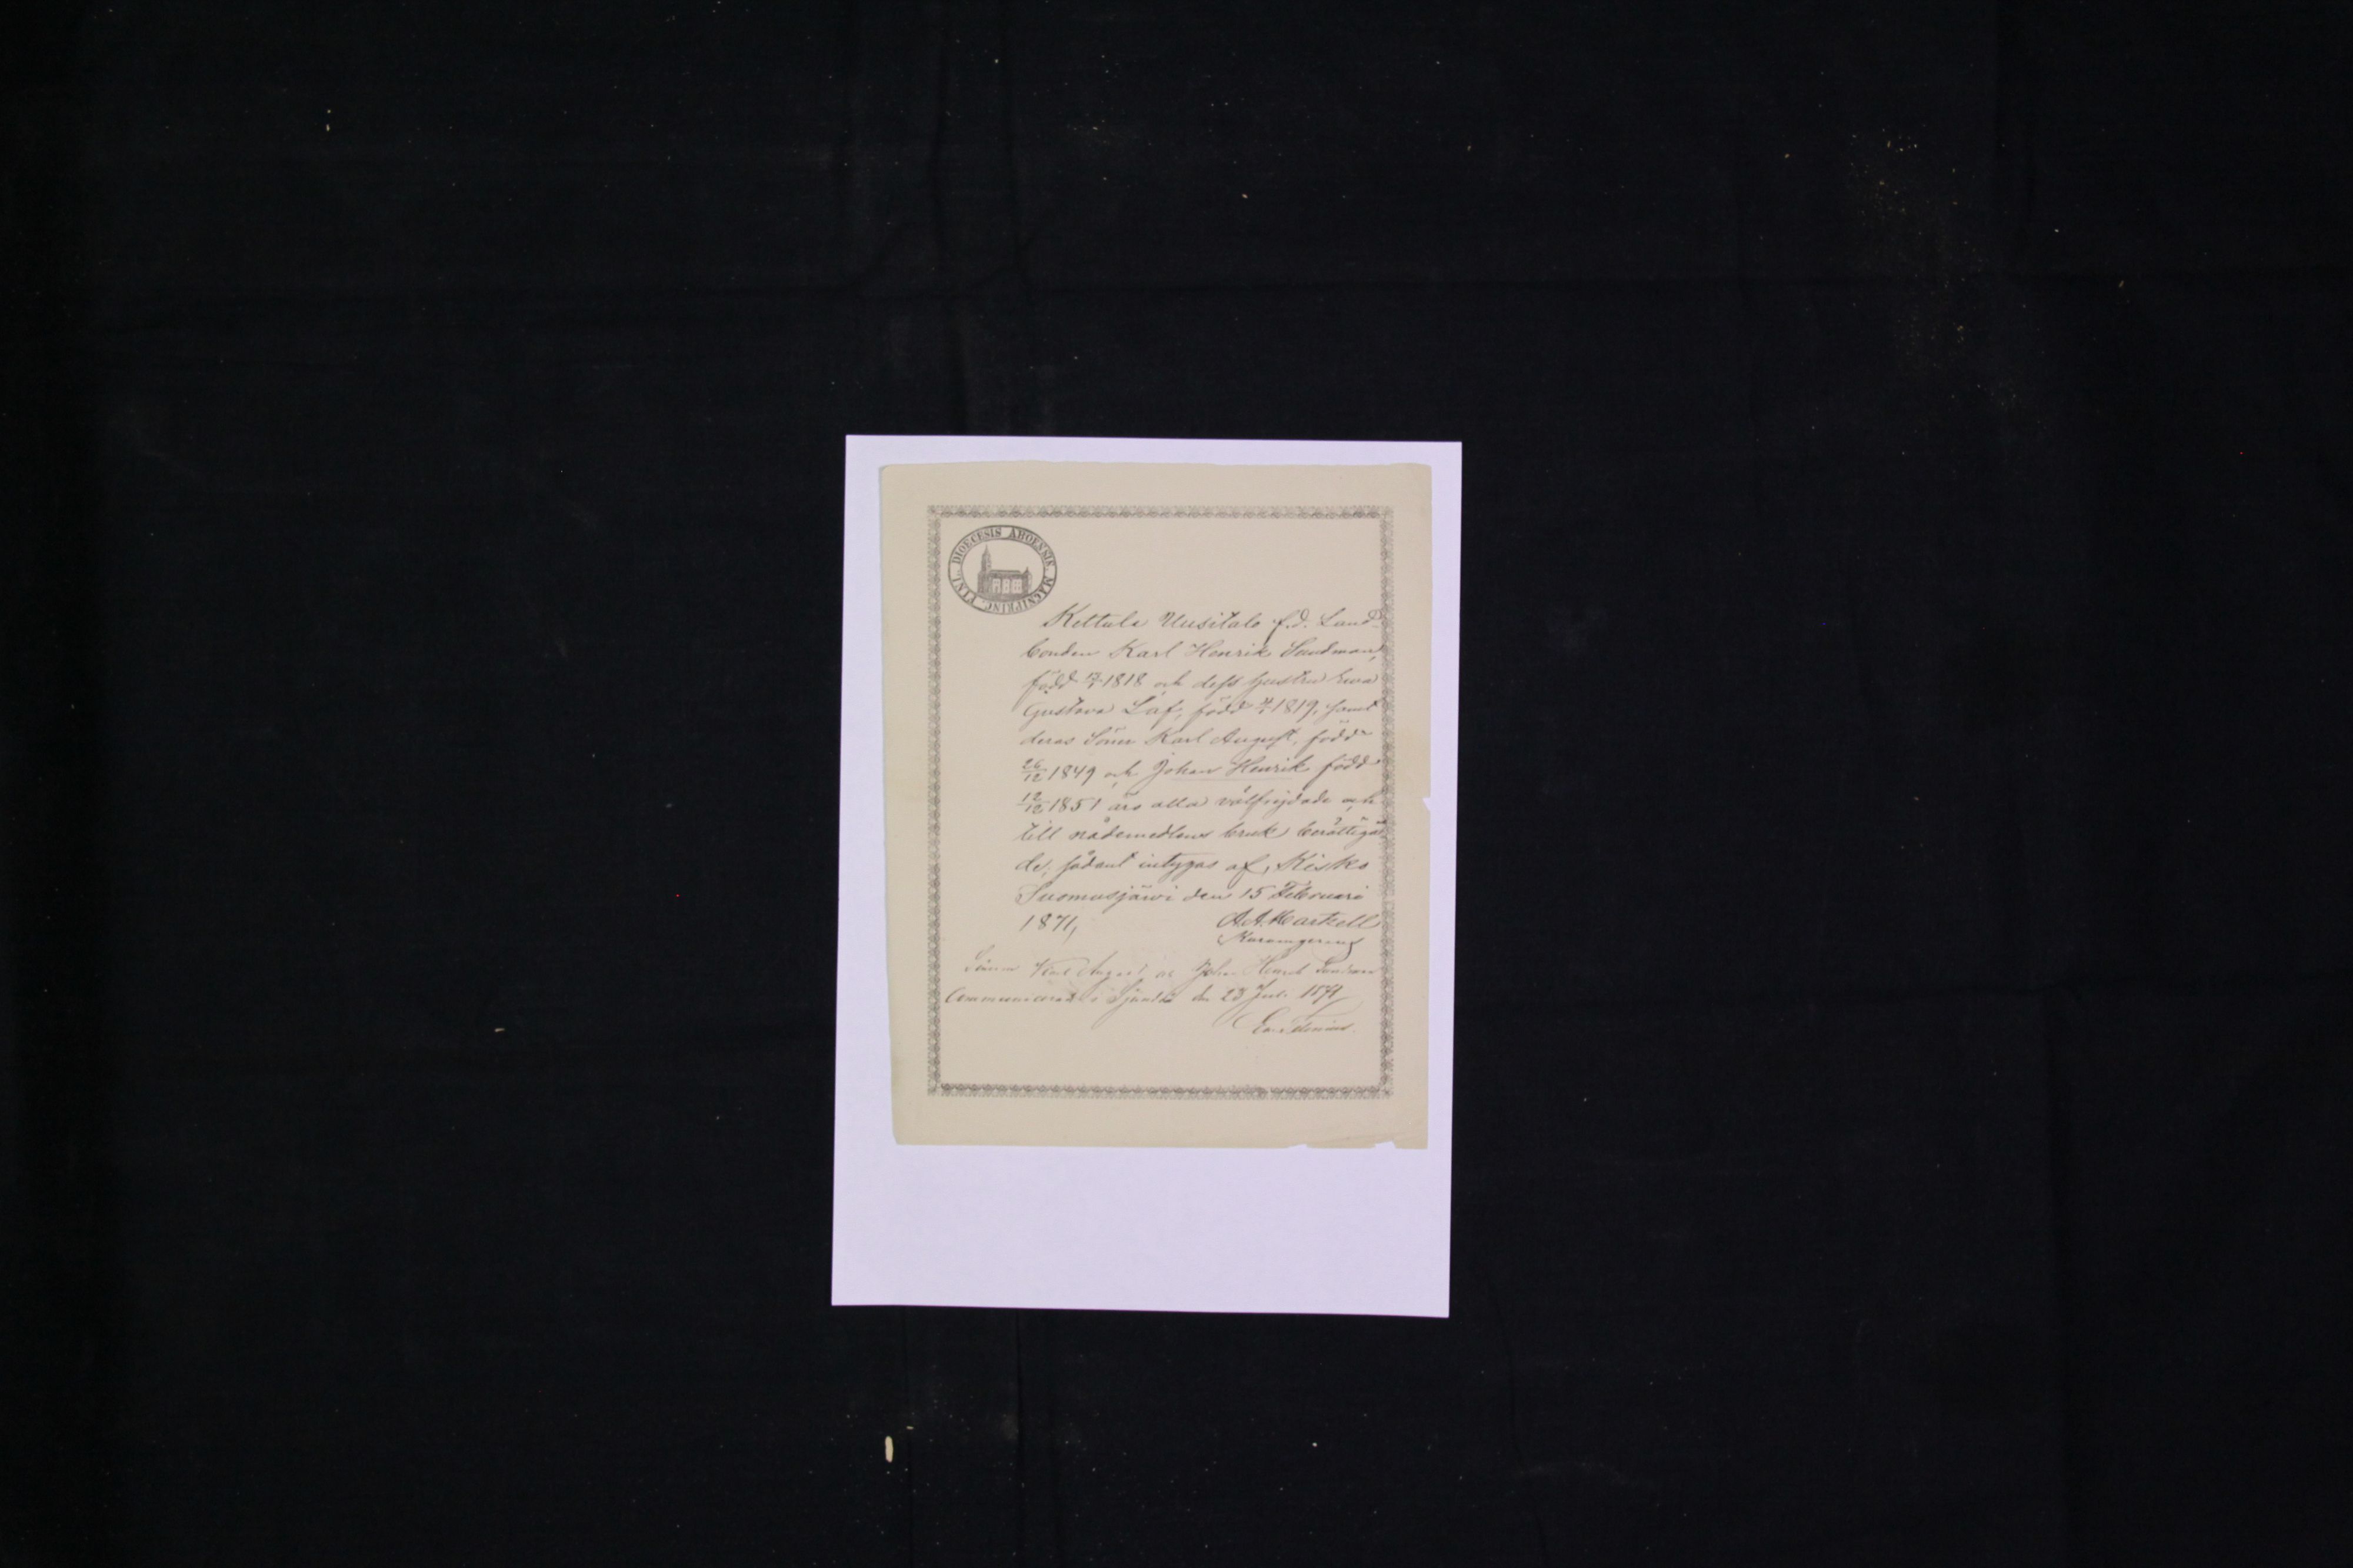 DIOECESIS ABOENSIS. MAGNI PRINC. FINL.
Kettula Uusitalo f.d. Land-
bonden Karl Henrik Sandman,
född 1818 och dess hustru Eva
Gustava Löf, född 1819, samt
deras Söner Karl August, född
26/12 1849 och Johan Henrik född
12/12 1851 äro alla välfrejdade och
till nådemedlens bruk berättiga-
de, sådant intygas af, Kisko
Suomusjärvi den 15 Februari
1871,
Karl August Johan Henrik
Communicerat i Sjundeå den 23 Juli 1871